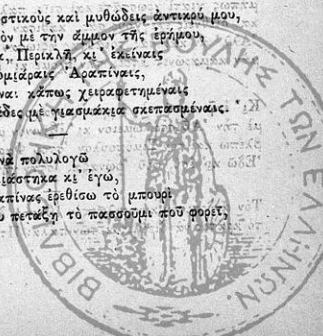 στικοὺς καὶ μυθώδεις ἀντικρύ μου,
ὸν μὲ τὴν ἄμμον τῆς ἐρήμου,
ε, Περικλῆ, κι᾿ ἐκείναις
Ἀραπίναις,
να: κάπως χειραφετημέναις
δες μὲ γιασμάκια σκεπασμέναις.
νὰ πολυλογῶ
ιάστηκα κι᾿ ἐγώ,
απίνας ἐρεθίσω τὸ μπουρὶ
υ πετάξῃ τὸ πασσοῦμι ποῦ φορεῖ,
ΒΙΒΛΙ ΒΟΥΛΗΣ ΤΩΝ ΕΛΛΗΝΩΝ